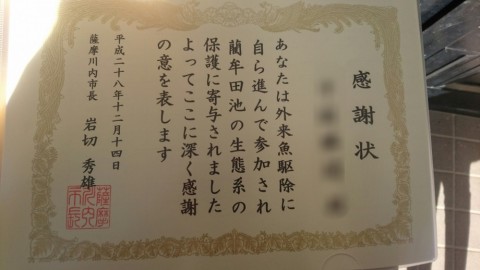 感謝状
あなたは外来魚駆除に
自ら進んで参加され
藺牟田池の生態系の
保護に寄与されました
よってここに深く感謝
の意を表します
平成二十八年十二月十四日
薩摩川内市長 岩切 秀雄
薩摩
川内
市長